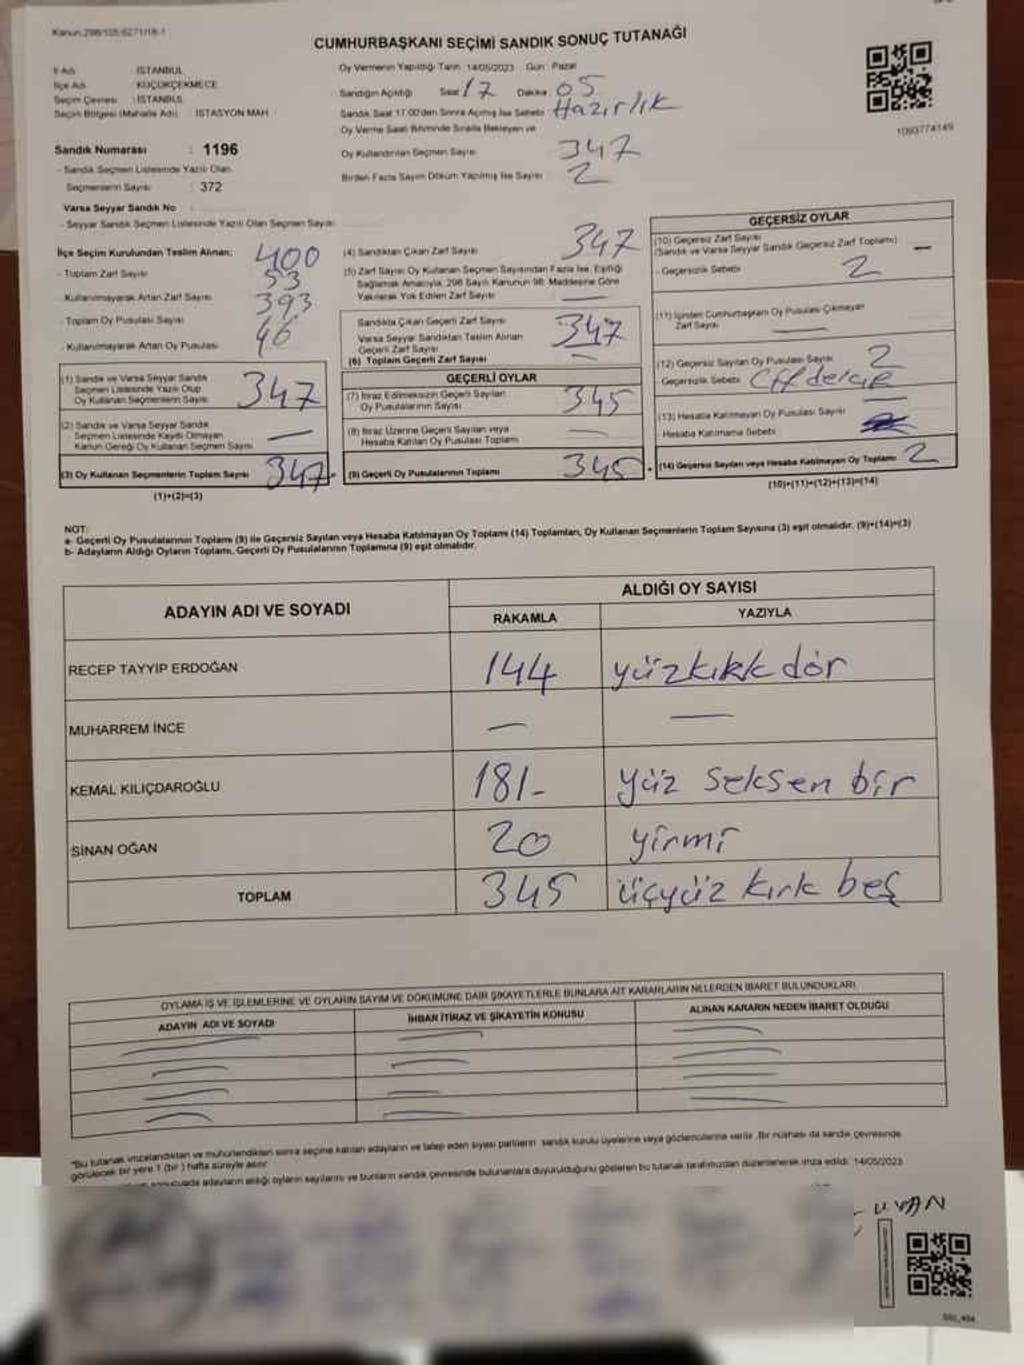 Kanun:298/105;6271/18-1
CUMHURBAŞKANI SEÇİMİ SANDIK SONUÇ TUTANAĞI
İl Adı : İSTANBUL
İlçe Adı : KÜÇÜKÇEKMECE
Seçim Çevresi : İSTANBUL
Seçim Bölgesi (Mahalle Adı) : İSTASYON MAH
Sandık Numarası : 1196
- Sandık Seçmen Listesinde Yazılı Olan
Seçmenlerin Sayısı : 372
Varsa Seyyar Sandık No :
- Seyyar Sandık Seçmen Listesinde Yazılı Olan Seçmen Sayısı:
Oy Vermenin Yapıldığı Tarih: 14/05/2023 Gün : Pazar
Sandığın Açıldığı Saat 17 Dakika 05
Sandık Saat 17.00'den Sonra Açmış İse Sebebi Hazırlık
Oy Verme Saati Bitiminde Sırada Bekleyen ve
Oy Kullandırılan Seçmen Sayısı 347
Birden Fazla Sayım Döküm Yapılmış İse Sayısı 2
1093774149
İlçe Seçim Kurulundan Teslim Alınan:
- Toplam Zarf Sayısı 400
- Kullanılmayarak Artan Zarf Sayısı 53
- Toplam Oy Pusulası Sayısı 393
- Kullanılmayarak Artan Oy Pusulası 46
(1) Sandık ve Varsa Seyyar Sandık
Seçmen Listesinde Yazılı Olup
Oy Kullanan Seçmenlerin Sayısı 347
(2) Sandık ve Varsa Seyyar Sandık
Seçmen Listesinde Kaydı Olmayan
Kanun Gereği Oy Kullanan Seçmen Sayısı —
(3) Oy Kullanan Seçmenlerin Toplam Sayısı 347
(1)+(2)=(3)
(4) Sandıktan Çıkan Zarf Sayısı 347
(5) Zarf Sayısı Oy Kullanan Seçmen Sayısından Fazla İse, Eşitliği
Sağlamak Amacıyla; 298 Sayılı Kanunun 98. Maddesine Göre
Yakılarak Yok Edilen Zarf Sayısı —
Sandıkta Çıkan Geçerli Zarf Sayısı 347
Varsa Seyyar Sandıktan Teslim Alınan
Geçerli Zarf Sayısı —
(6) Toplam Geçerli Zarf Sayısı
GEÇERLİ OYLAR
(7) İtiraz Edilmeksizin Geçerli Sayılan
Oy Pusulalarının Sayısı 345
(8) İtiraz Üzerine Geçerli Sayılan veya
Hesaba Katılan Oy Pusulası Toplamı —
(9) Geçerli Oy Pusulalarının Toplamı 345
GEÇERSİZ OYLAR
(10) Geçersiz Zarf Sayısı
(Sandık ve Varsa Seyyar Sandık Geçersiz Zarf Toplamı) —
- Geçersizlik Sebebi 2
(11) İçinden Cumhurbaşkanı Oy Pusulası Çıkmayan
Zarf Sayısı —
(12) Geçersiz Sayılan Oy Pusulası Sayısı 2
- Geçersizlik Sebebi
(13) Hesaba Katılmayan Oy Pusulası Sayısı —
- Hesaba Katılmama Sebebi
(14) Geçersiz Sayılan veya Hesaba Katılmayan Oy Toplamı 2
(10)+(11)+(12)+(13)=(14)
NOT:
a- Geçerli Oy Pusulaları Toplamı (9) ile Geçersiz Sayılan veya Hesaba Katılmayan Oy Toplamı (14) Toplamları, Oy Kullanan Seçmenlerin Toplam Sayısına (3) eşit olmalıdır. (9)+(14)=(3)
b- Adayların Aldığı Oyların Toplamı, Geçerli Oy Pusulalarının Toplamına (9) eşit olmalıdır.
ADAYIN ADI VE SOYADI ALDIĞI OY SAYISI
RAKAMLA YAZIYLA
RECEP TAYYİP ERDOĞAN 144 yüzkırk dör
MUHARREM İNCE — —
KEMAL KILIÇDAROĞLU 181- yüz seksen bir
SİNAN OĞAN 20 yirmi
TOPLAM 345 üçyüz kırk beş
OYLAMA İŞ VE İŞLEMLERİNE VE OYLARIN SAYIM VE DÖKÜMÜNE DAİR ŞİKAYETLERLE BUNLARA AİT KARARLARIN NELERDEN İBARET BULUNDUKLARI
ADAYIN ADI VE SOYADI İHBAR İTİRAZ VE ŞİKAYETİN KONUSU ALINAN KARARIN NEDEN İBARET OLDUĞU
"Bu tutanak imzalandıktan ve mühürlendikten sonra seçime katılan adayların ve talep eden siyasi partilerin sandık kurulu üyelerine veya gözlemcilerine verilir. Bir nüshası da sandık çevresinde
görülecek bir yere 1 (bir) hafta süreyle asılır.
adayların aldığı oyların sayılarını ve bunların sandık çevresinde bulunanlara duyurulduğunu gösteren bu tutanak tarafımızdan düzenlenerek imza edildi. 14/05/2023